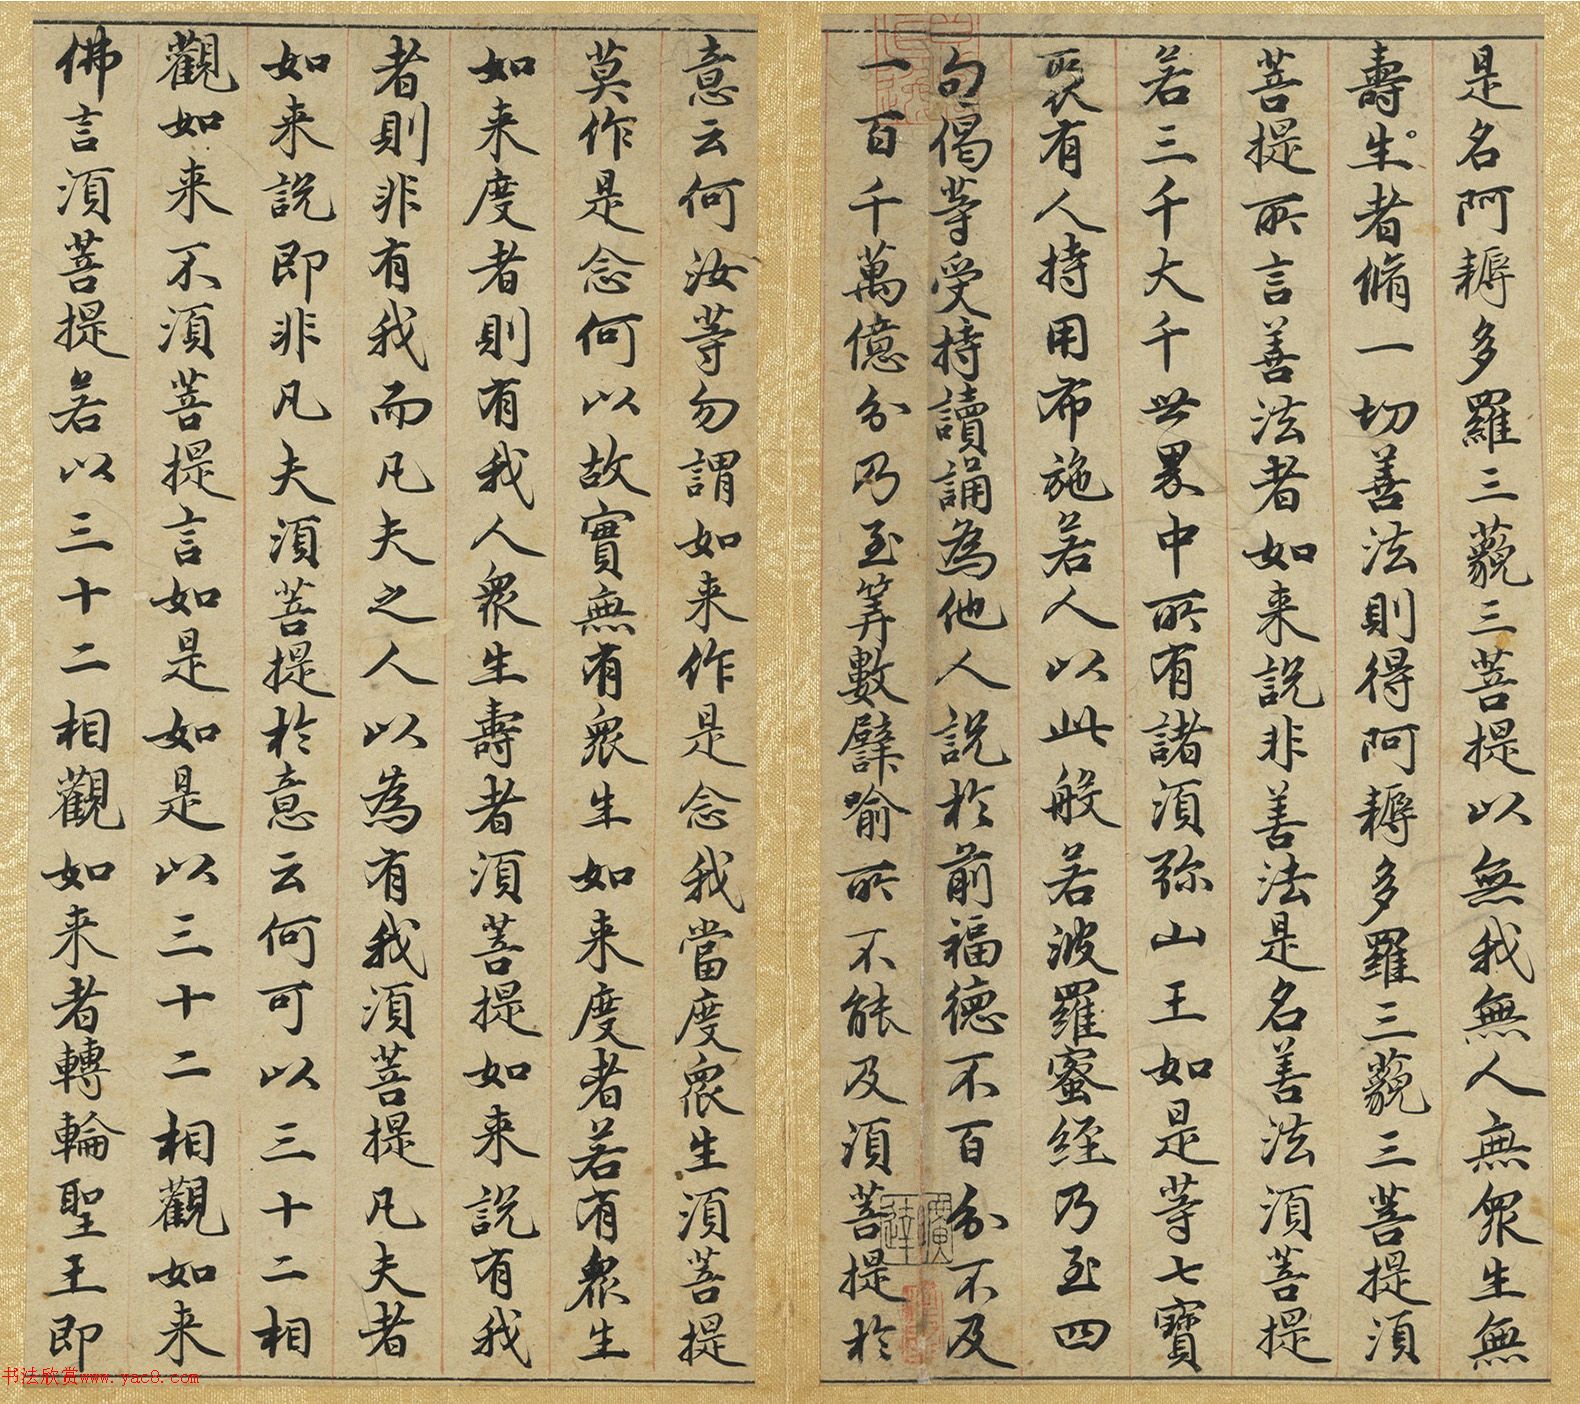 是名阿耨多羅三藐三菩提以無我無人無眾生無
壽生者脩一切善法則得阿耨多羅三藐三菩提須
菩提所言善法者如来說非善法是名善法須菩提
若三千大千世界中所有諸須弥山王如是等七寶
聚有人持用布施若人以此般若波羅蜜経乃至四
句偈等受持讀誦為他人說於前福德不百分不及
一百千萬億分乃至筭數譬喻所不能及須菩提於
意云何汝等勿謂如来作是念我當度眾生須菩提
莫作是念何以故實無有眾生如来度者若有眾生
如来度者則有我人眾生壽者須菩提如来說有我
者則非有我而凡夫之人以為有我須菩提凡夫者
如来說即非凡夫須菩提於意云何可以三十二相
觀如来不須菩提言如是如是以三十二相觀如来
佛言須菩提若以三十二相觀如来者轉輪聖王即
书法欣赏www.yac8.com